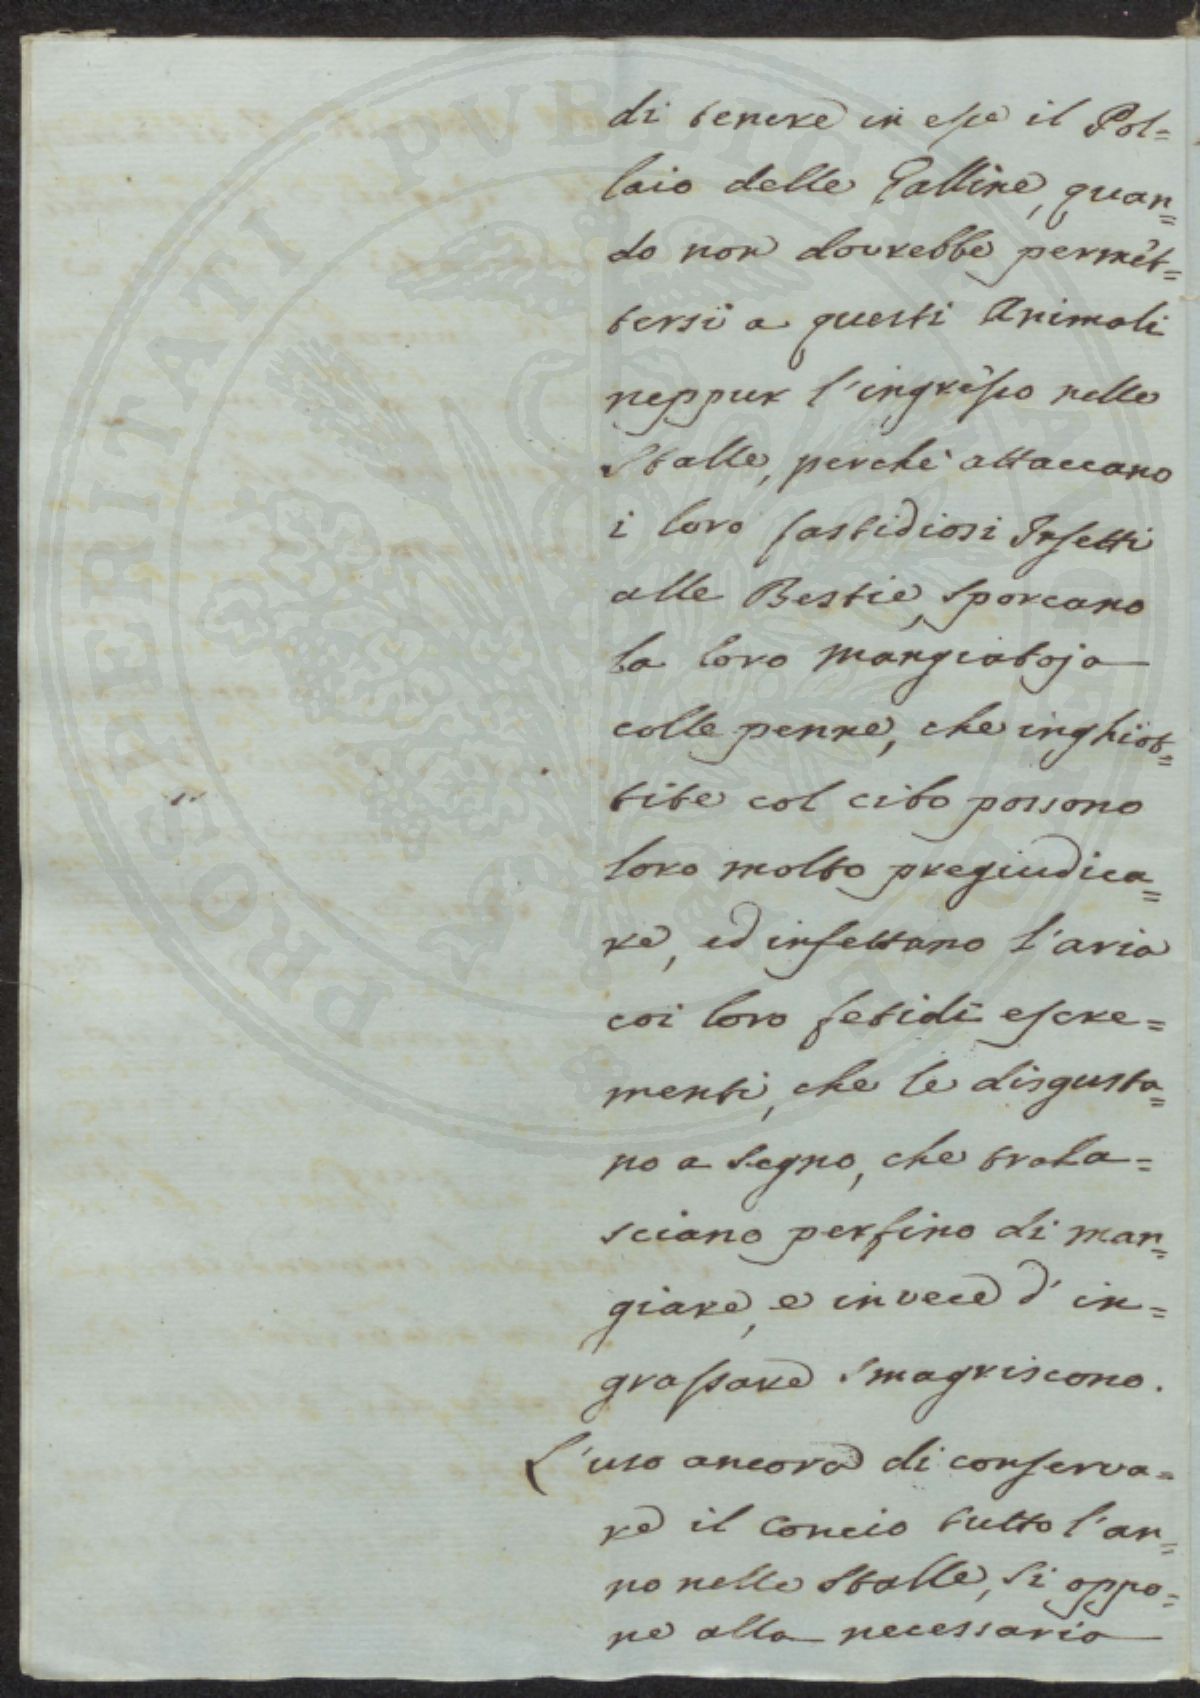 di tenere in esse il Pol=
laio delle Galline, quan=
do non dovrebbe permet=
tersi a questi Animali
neppur l'ingresso nelle
Stalle, perchè attaccano
i loro fastidiosi Insetti
alle Bestie, sporcano
la loro mangiatoja
colle penne, che inghiot=
tite col cibo possono
loro molto pregiudica=
re, ed infettano l'aria
coi loro fetidi escre=
menti, che le disgusta=
no a segno, che trala=
sciano perfino di man=
giare, e invece d'in=
grassare smagriscono.
L'uso ancora di conserva=
re il Concio tutto l'an=
no nelle Stalle, si oppo=
ne alla necessaria
PROSPERITATI PVBLICAE AVGENDAE